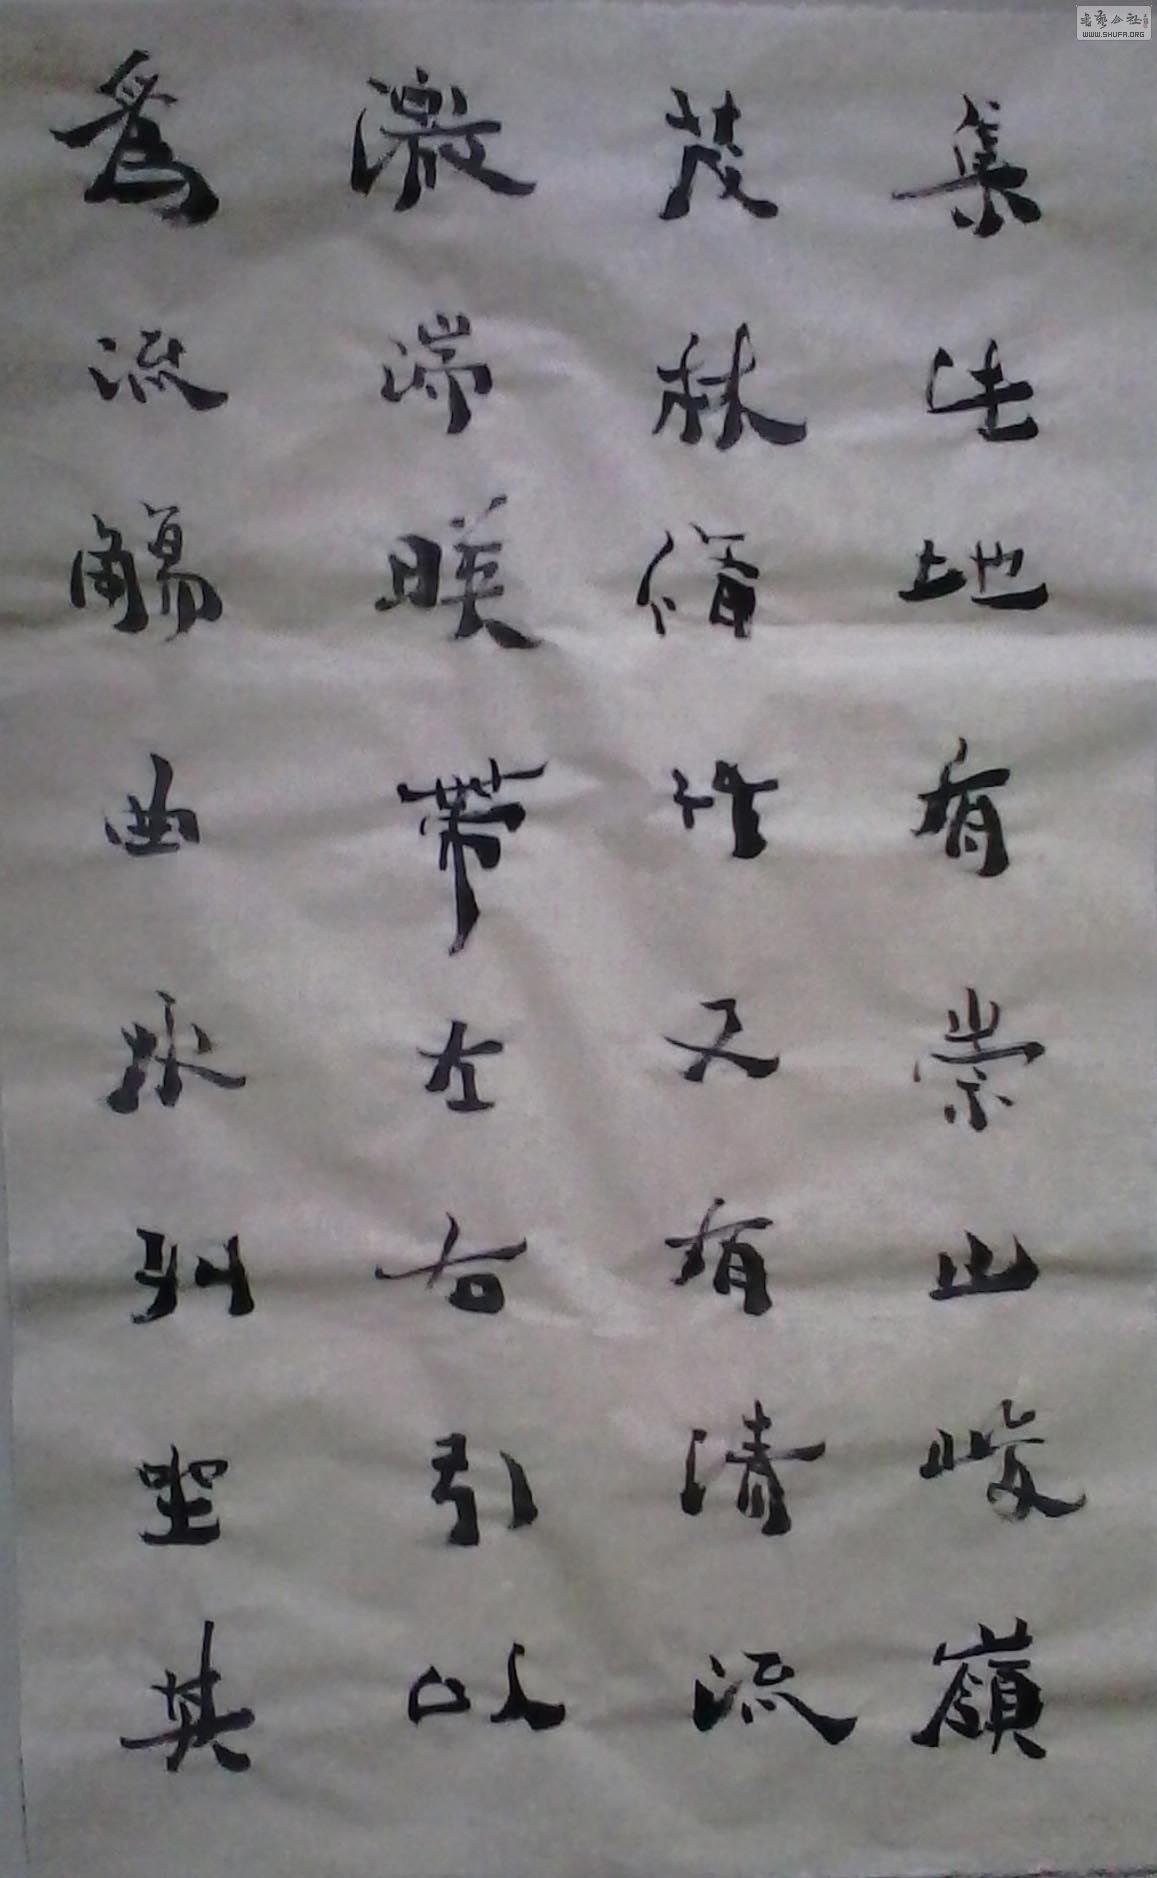 集此地有崇山峻嶺
茂林脩竹又有清流
激湍暎帶左右引以
爲流觴曲水列坐其
WWW.SHUFA.ORG